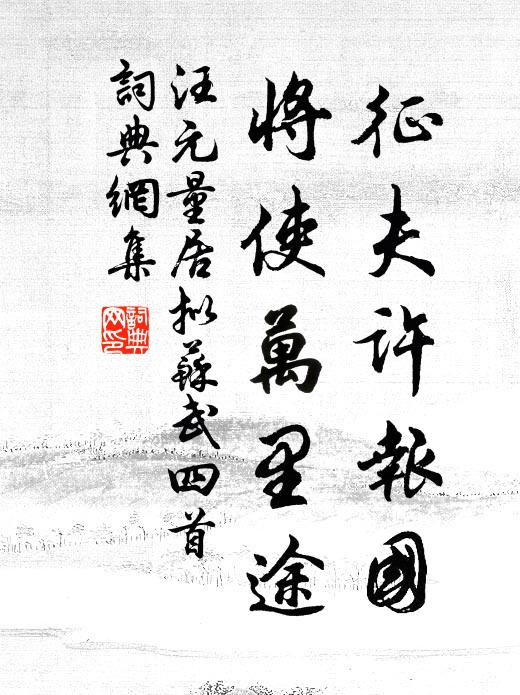 征夫許報國
將使萬里途
汪元量居擬蘇武四首
詞典網集
詞典
网印